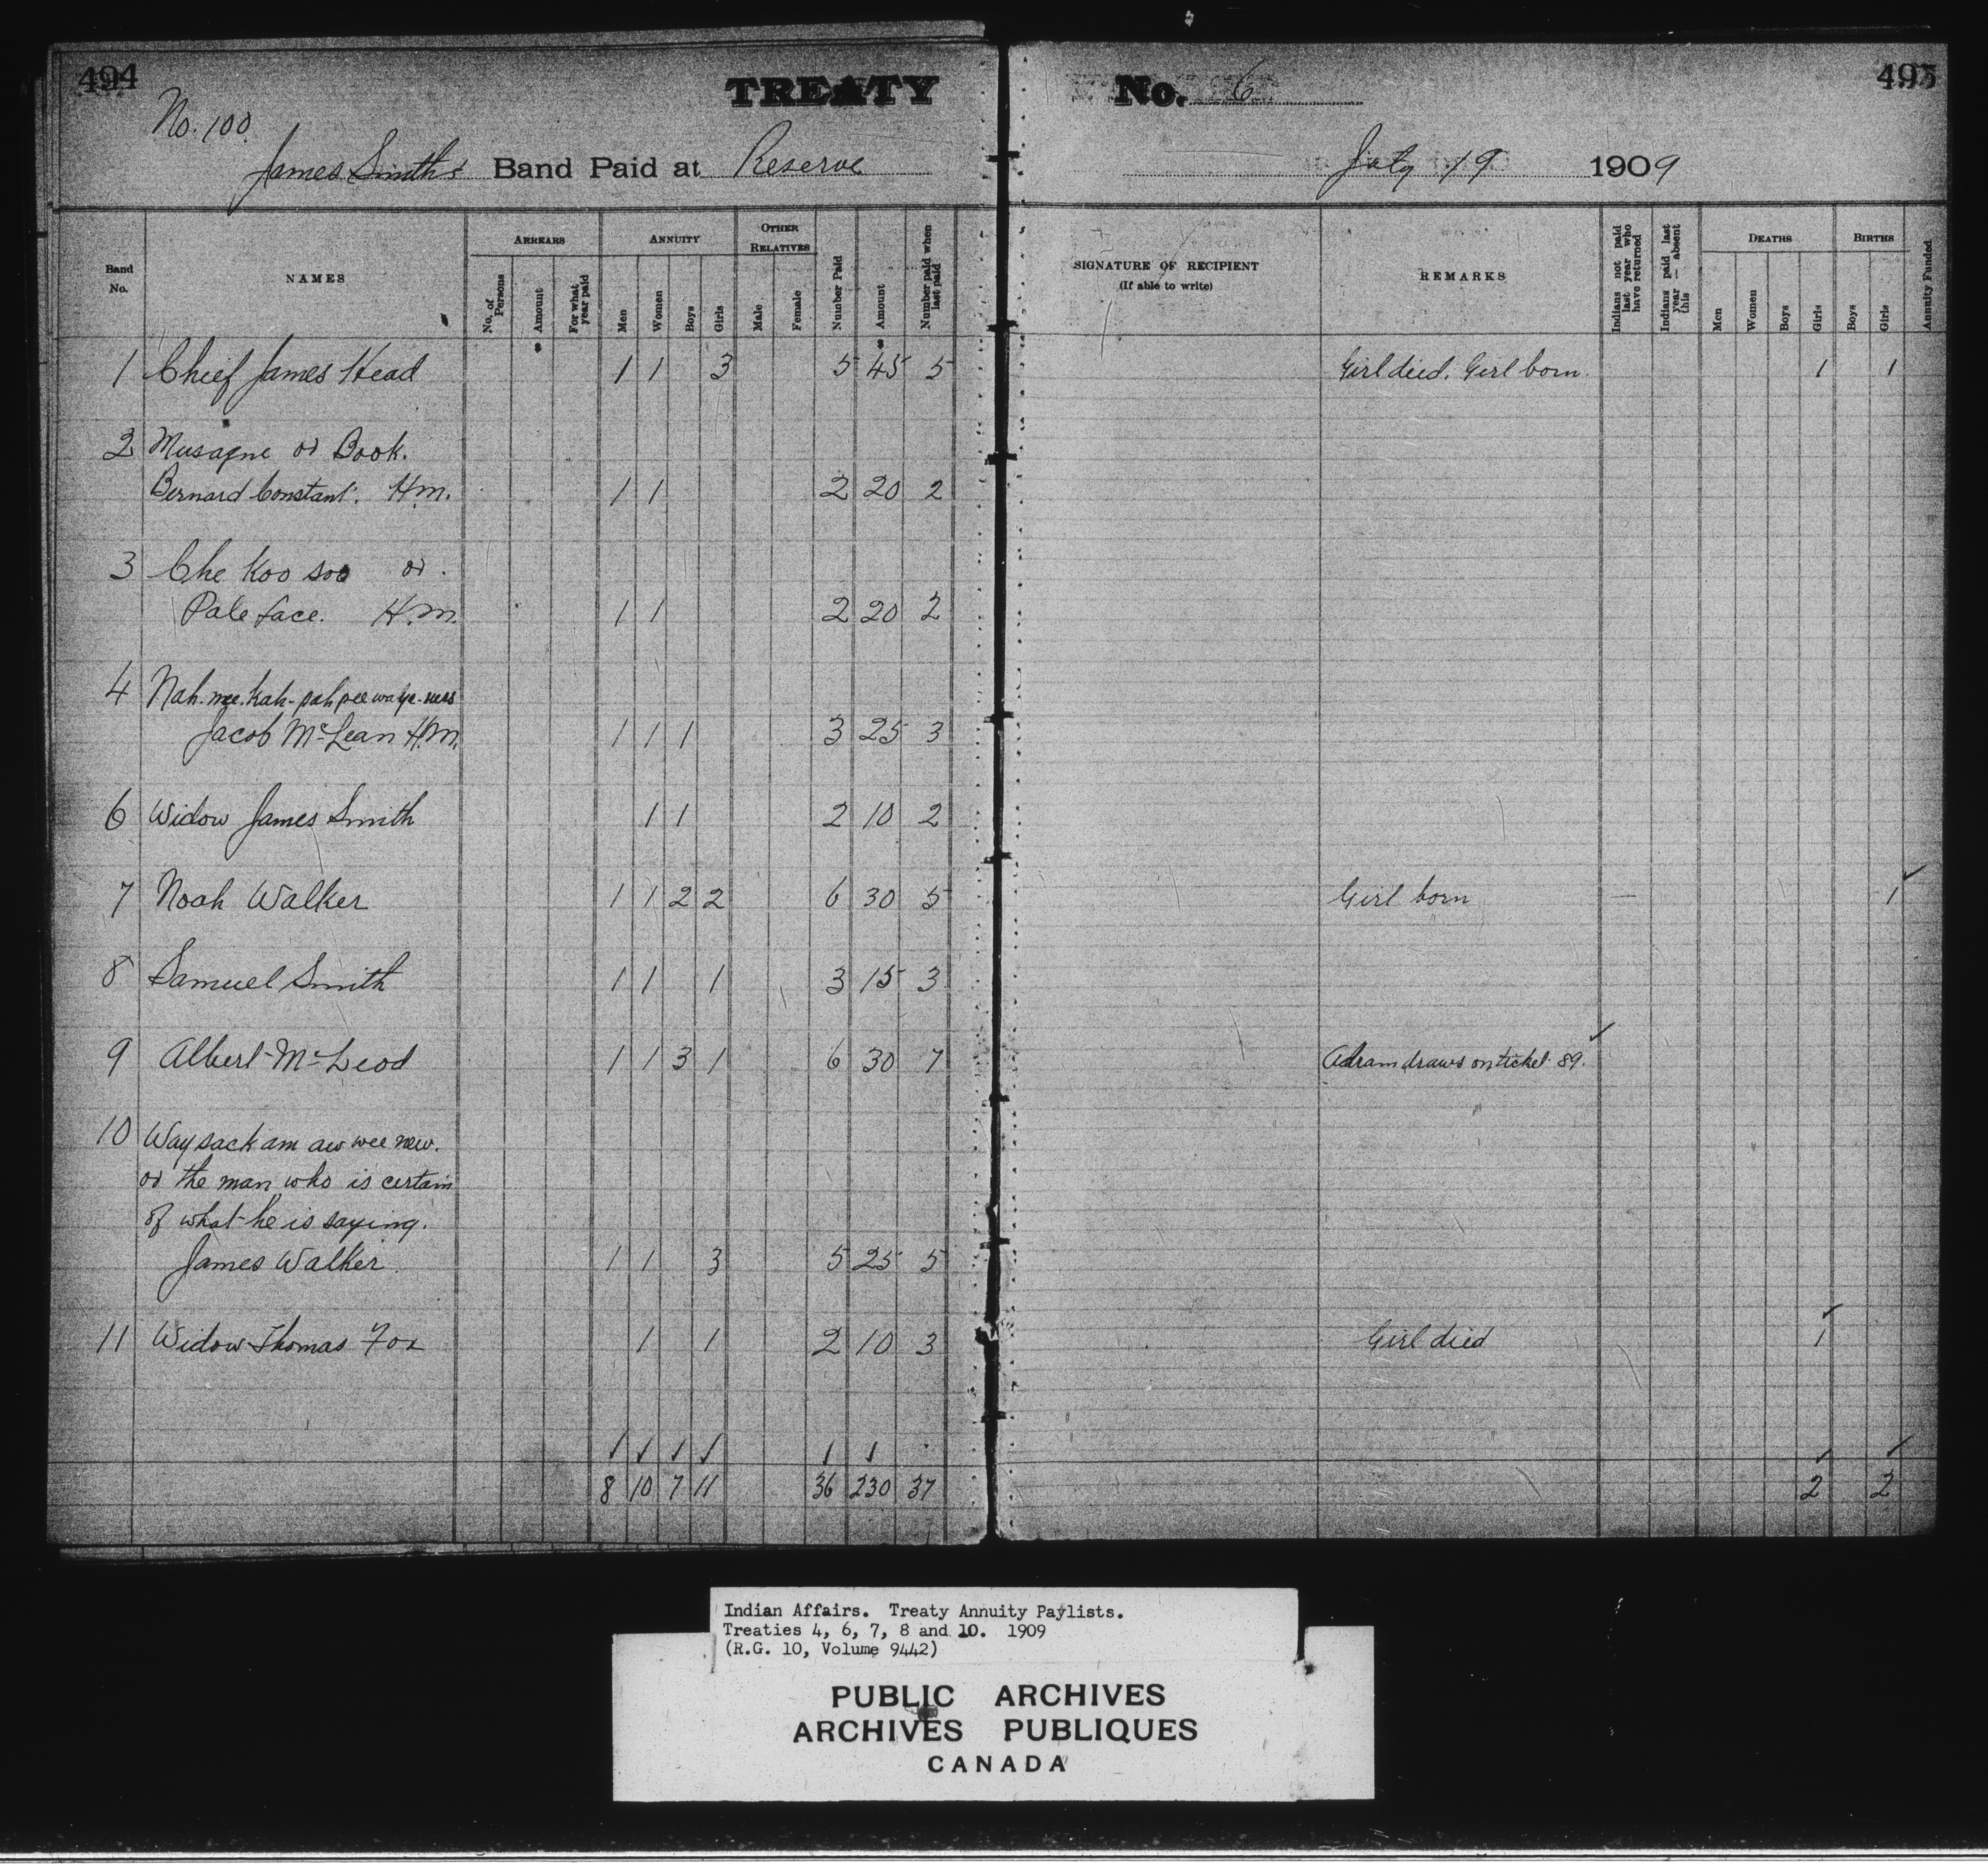 494
TREATY No. 6
495
No. 100
James Smith's Band Paid at Reserve
July 19 1909
Band No.
NAMES
ARREARS
No. of Persons
Amount
For what year paid
ANNUITY
Men
Women
Boys
Girls
OTHER RELATIVES
Male
Female
Number Paid
Amount
Number paid when last paid
SIGNATURE OF RECIPIENT
(If able to write)
REMARKS
Indians not paid last year who have returned
Indians paid last year — absent this
DEATHS
Men
Women
Boys
Girls
BIRTHS
Boys
Girls
Annuity Funded
1 Chief James Head 1 1 3 5 45 5 Girl died. Girl born. 1 1
2 Musagne or Book.
Bernard Constant. H.M. 1 1 2 20 2
3 Che Koo soo or
Pale face. H.M. 1 1 2 20 2
4 Nah-mee-kah-pah
Jacob McLean H.M. 1 1 1 3 25 3
6 Widow James Smith 1 1 2 10 2
7 Noah Walker 1 1 2 2 6 30 5 Girl born 1
8 Samuel Smith 1 1 1 3 15 3
9 Albert McLeod 1 1 3 1 6 30 7 draws on ticket 89.
10 Way sack am aw wee new.
or the man who is certain
of what he is saying.
James Walker 1 1 3 5 25 5
11 Widow Thomas Fox 1 1 2 10 3 Girl died 1
8 10 7 11 36 230 37 2 2
Indian Affairs. Treaty Annuity Paylists.
Treaties 4, 6, 7, 8 and 10. 1909
(R.G. 10, Volume 9442)
PUBLIC ARCHIVES
ARCHIVES PUBLIQUES
CANADA